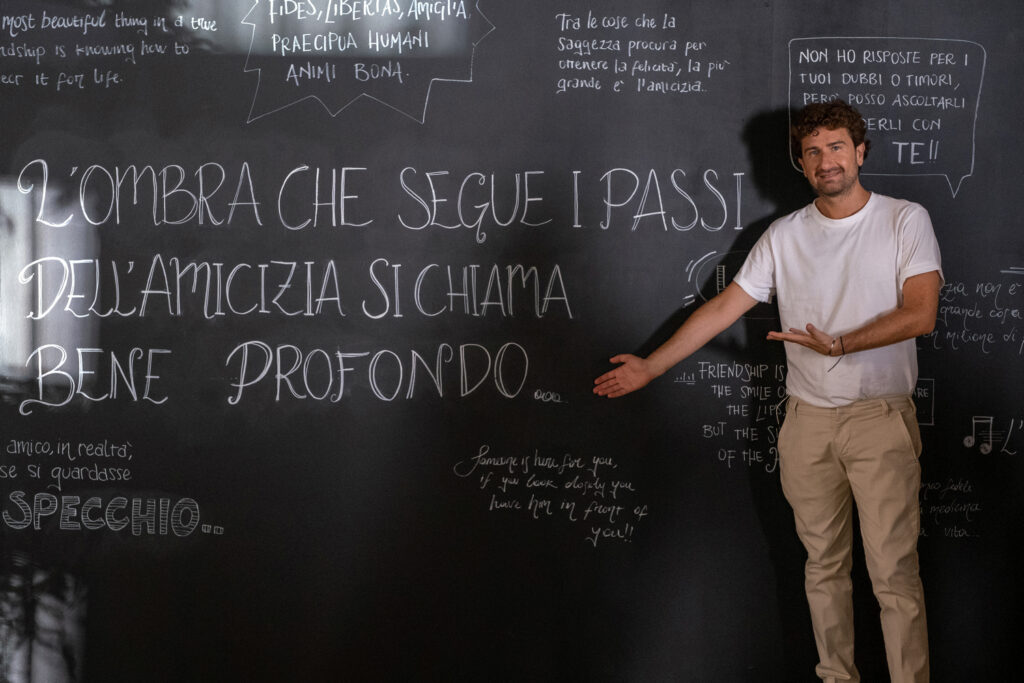 most beautiful thing in a true
ndship is knowing how to
ect it for life.
FIDES, LIBERTAS, AMICITIA
PRAECIPUA HUMANI
ANIMI BONA.
Tra le cose che la
saggezza procura per
ottenere la felicità, la più
grande è l'amicizia..
NON HO RISPOSTE PER I
TUOI DUBBI O TIMORI,
PERÒ POSSO ASCOLTARLI
ERLI CON
TE!!
L'OMBRA CHE SEGUE I PASSI
DELL'AMICIZIA SI CHIAMA
BENE PROFONDO...
zia non è
grande cosa
un milione di p
FRIENDSHIP IS
THE SMILE O
THE LIPS
BUT THE S
OF THE
ARE
L'
amico, in realtà,
se si guardasse
SPECCHIO...
Someone is here for you,
if you look closely you
have him in front of
you!!
ico fedele
medicina
a vita..